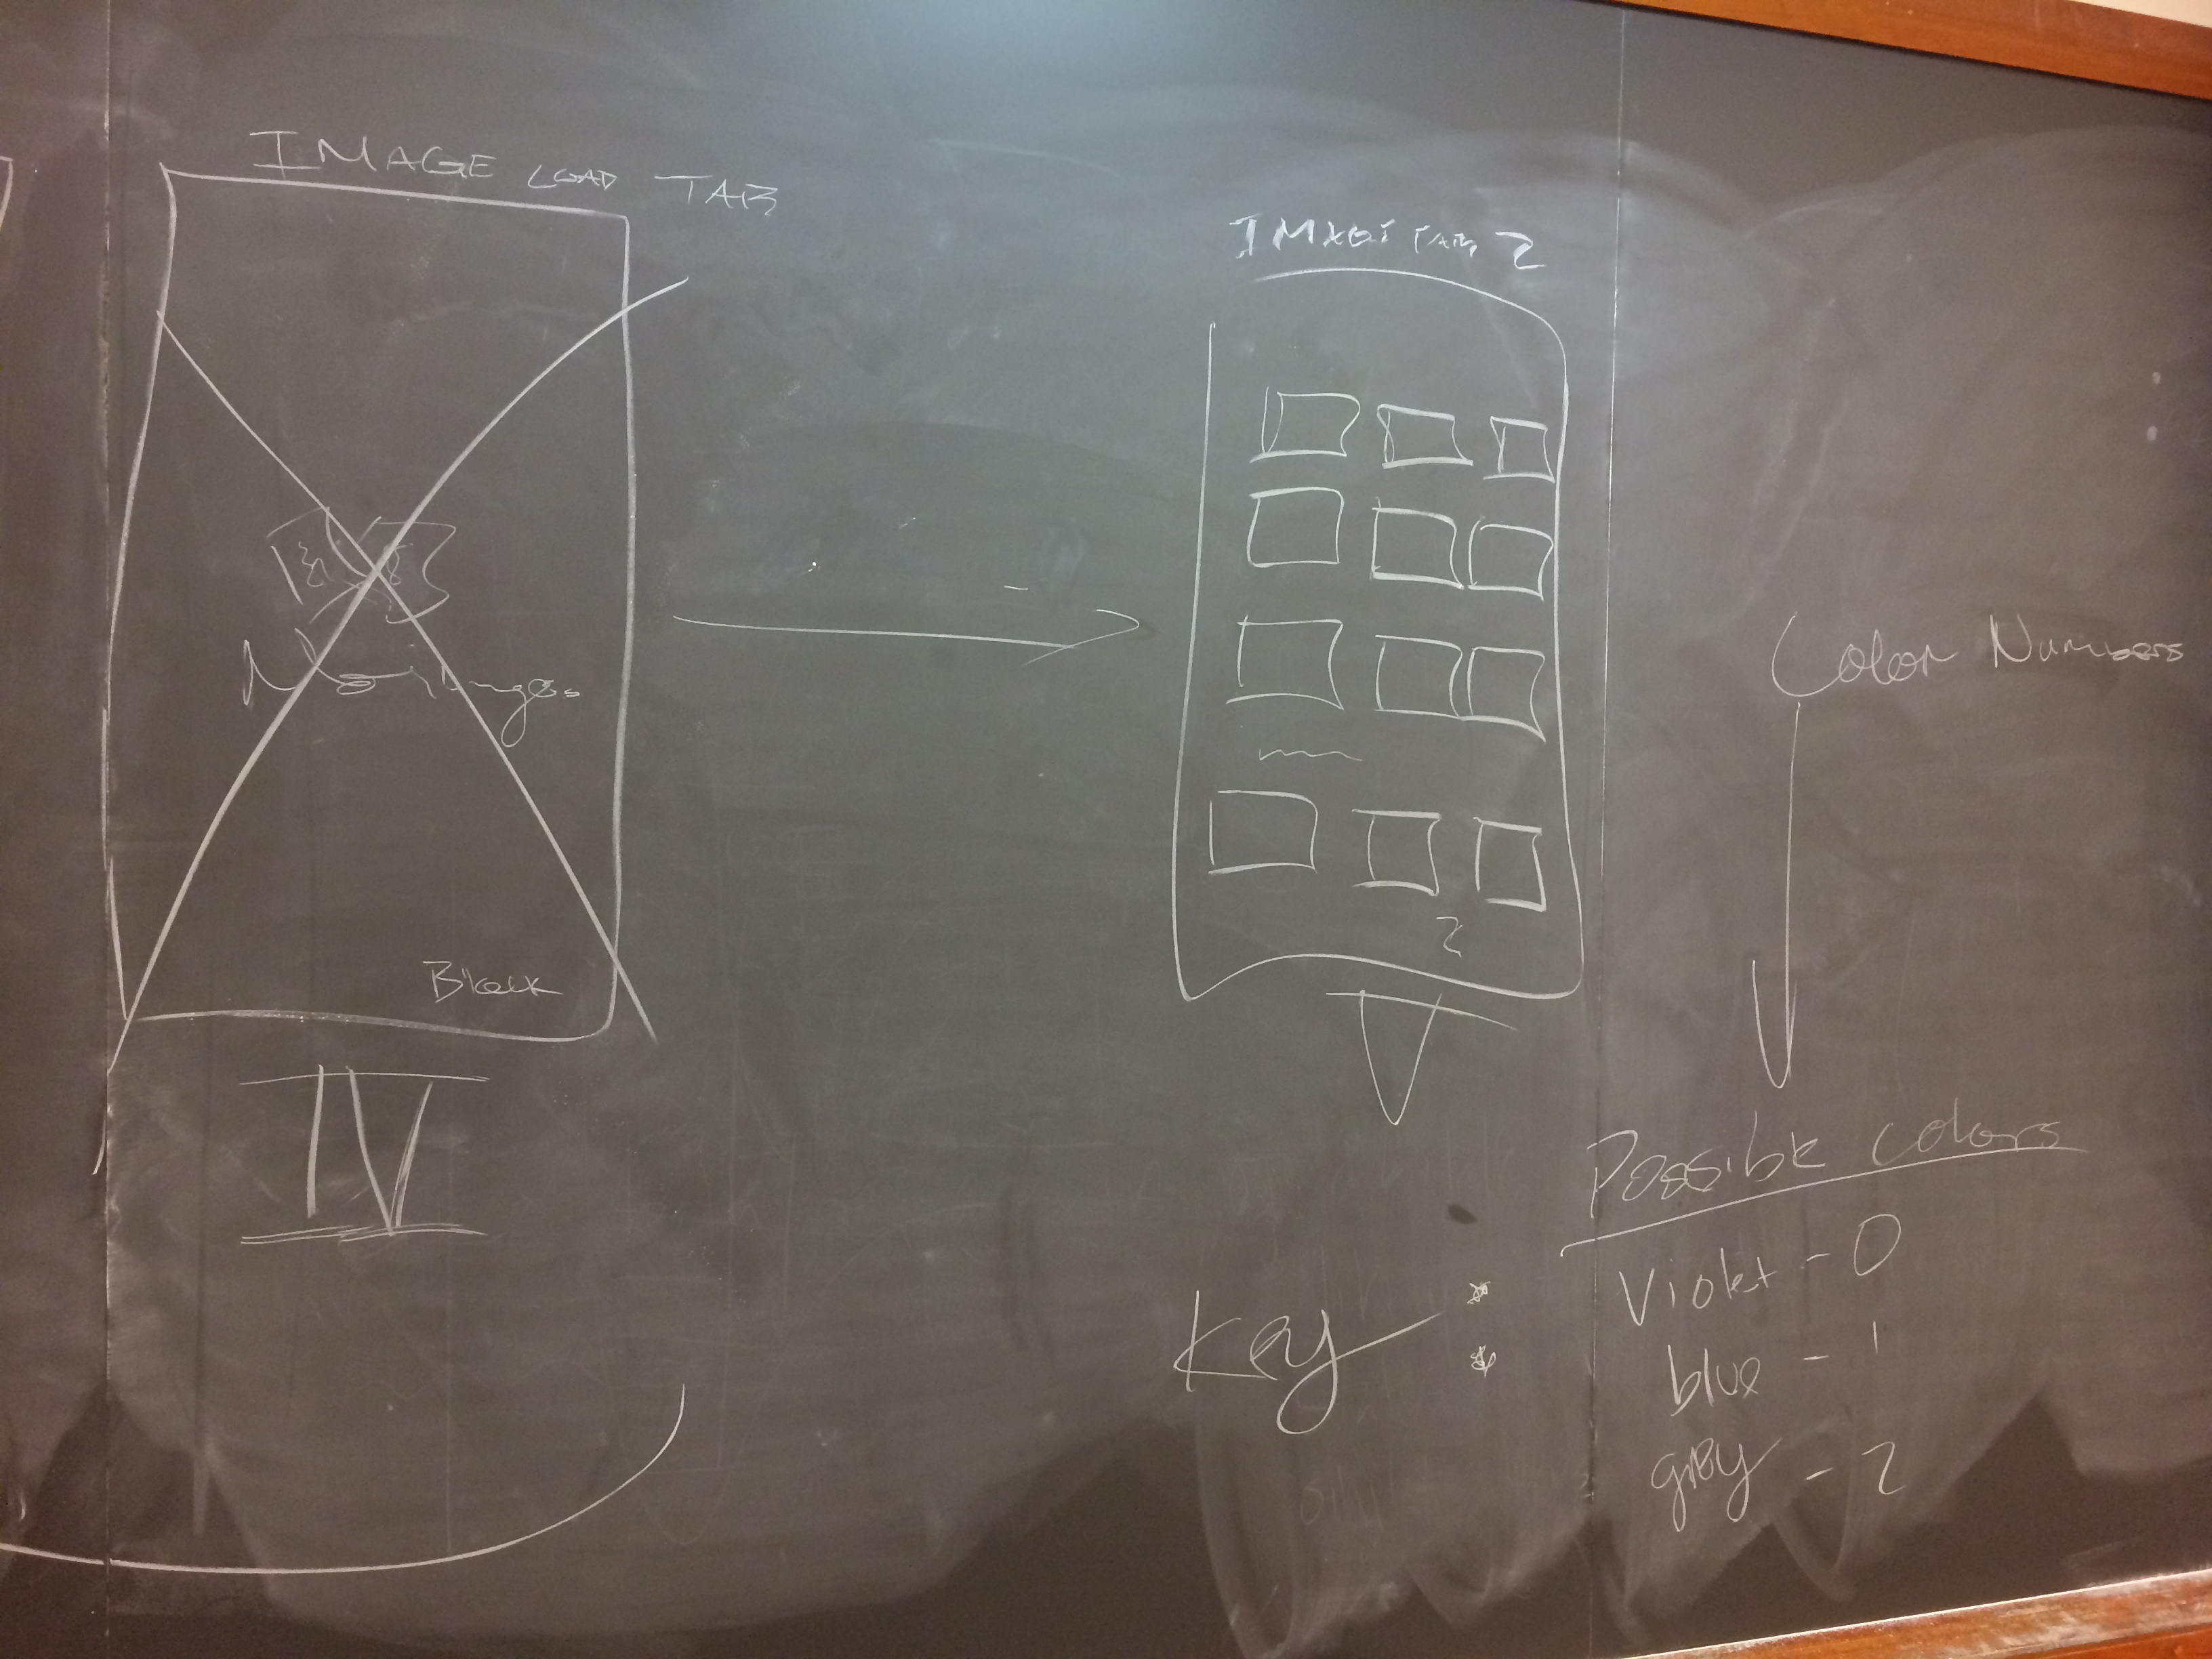 IMAGE LOAD TAB
No images
Black
IV
IMAGE TAB 2
2
V
Color Numbers
Possible colors
Key :
Violet - 0
blue - 1
grey - 2